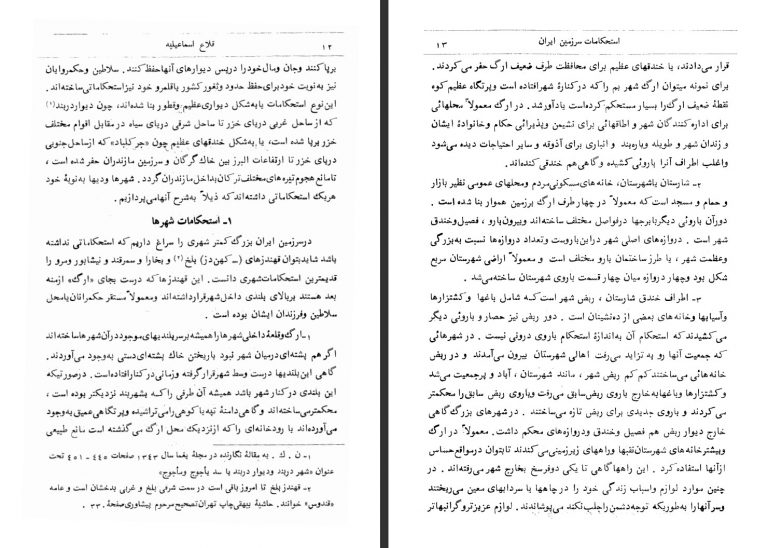 ۱۲ قلاع اسماعیلیه
برپا کنند وجان ومال خود را درپس دیوارهای آنها حفظ کنند . سلاطین وحکمروایان
نیز به نوبت خود برای حفظ حدود وثغور کشور یا قلمرو خود نیز استحکاماتی ساخته اند .
این نوع استحکامات یا به شکل دیواری عظیم و قطور بنا شده اند، چون دیوار دربند (۱)
که از ساحل غربی دریای خزر تا ساحل شرقی دریای سیاه در مقابل اقوام مختلف
خزر برپا شده است، یا به شکل خندقهای عظیم چون «جرکلباد» که از ساحل جنوبی
دریای خزر تا ارتفاعات البرز بین خاک گرگان و سرزمین مازندران حفر شده است ،
تا مانع هجوم تیره های مختلف ترکان بداخل مازندران گردد . شهرها ودیها به نوبۀ خود
هریک استحکاماتی داشته اند که ذیلاً به شرح آنها می پردازیم .
۱- استحکامات شهرها
درسرزمین ایران بزرگ کمتر شهری را سراغ داریم که استحکاماتی نداشته
باشد شاید بتوان قهندزهای (ــ کهن دز) بلخ (۲) و بخارا و سمرقند و نیشابور و مرو را
قدیمترین استحکامات شهری دانست . این قهندزها که درست بجای «ارگ» ازمنه
بعد هستند بر بالای بلندی داخل شهر قرار داشته اند و معمولاً مستقر حکمرانان یا محل
سلاطین و فرزندان ایشان بوده است .
۱ـ ارگ وقلعۀ داخلی شهرها را همیشه برسر بلندیهای موجود در آن شهرها ساخته اند
اگر هم پشته ای درمیان شهر نبود با ریختن خاک پشته ای دستی به وجود می آوردند .
گاهی این بلندیها درست وسط شهر قرار گرفته و زمانی در کنار افتاده است . درصورتیکه
این بلندی در کنار شهر باشد همیشه آن طرفی را که بشهر بند نزدیکتر بوده است ،
محکمتر می ساخته اند و گاهی دامنۀ تپه یا کوهی را می تراشیده و پرتگاهی عمیق به وجود
می آورده اند یا رودخانه ای را که از نزدیک محل ارگ می گذشته است مانع طبیعی
۱- ن . ک . به مقالۀ نگارنده در مجلۀ یغما سال ۱۳۴۳ صفحات ۴۴۵ - ۴۵۱ تحت
عنوان «شهر دربند و دیوار دربند یا سد یأجوج ومأجوج»
۲- قهندز بلخ تا امروز باقی است در سمت شرقی بلخ و غربی بدخشان است و عامه
«قندوس» خوانند. حاشیۀ بیهقی چاپ تهران تصحیح مرحوم پیشاوری صفحۀ ۳۳۰ .
استحکامات سرزمین ایران ۱۳
قرار می دادند، یا خندقهای عظیم برای محافظت طرف ضعیف ارگ حفر می کردند .
برای نمونه میتوان ارگ شهر بم را که درکنارۀ شهر افتاده است وپرتگاه عظیم کوه
نقطۀ ضعیف ارگ را بسیار مستحکم کرده است یادآورشد . در ارگ معمولاً محلهائی
برای اداره کنندگان شهر و اطاقهائی برای نشیمن وپذیرائی حکام وخانوادۀ ایشان
و زندان شهر و طویله و یاره بند و انباری برای آذوقه و سایر احتیاجات دیده می شود
واغلب اطراف آنرا باروئی کشیده وگاهی هم خندقی کنده اند.
۲ـ شارستان یا شهرستان، خانه های مسکونی مردم ومحلهای عمومی نظیر بازار
و حمام و مسجد است که معمولاً در چهار طرف ارگ برزمین هموار بنا شده است .
دورآن باروئی دیگر با برجها درفواصل مختلف ساخته اند وبیرون بارو ، فصیل وخندق
شهر است . دروازه های اصلی شهر دراین باروست وتعداد دروازه ها نسبت به بزرگی
وعظمت شهر ، یا طرز ساختمان بارو مختلف است و معمولاً اراضی شهرستان مربع
شکل بود وچهار دروازه میان چهار قسمت باروی شهرستان ساخته می شد .
۳ـ اطراف خندق شارستان ، ربض شهر است که شامل باغها وکشتزارها
وآسیابها وخانه های بعضی از ده نشینان است . دور ربض نیز حصار و باروئی دیگر
می کشیدند که استحکام آن به اندازۀ استحکام باروی درونی نیست . در شهرهائی
که جمعیت آنها رو به تزاید می رفت اهالی شهرستان بیرون می آمدند و در ربض
خانه هائی می ساختند کم کم ربض شهر ، مانند شهرستان ، آباد و پرجمعیت می شد
وکشتزارها وباغها به خارج باروی ربض سابق می رفت وباروی ربض سابق را محکمتر
می کردند و باروی جدیدی برای ربض تازه می ساختند . در شهرهای بزرگ گاهی
خارج دیوار ربض هم فصیل وخندق ودروازه های محکم داشت. معمولاً در ارگ
وبیشتر خانه های شهرستان نقبها وراههای زیرزمینی می کندند تا بتوان درمواقع حساس
از آنها استفاده کرد . این راهها گاهی تا یکی دو فرسخ بخارج شهر می رفته اند . در
چنین موارد لوازم واسباب زندگی خود را درچاهها یا سردابهای معین می ریختند
وسر آنها را به طوریکه توجه دشمن را جلب نکند می پوشاندند. لوازم عزیزتر و گرانبهاتر